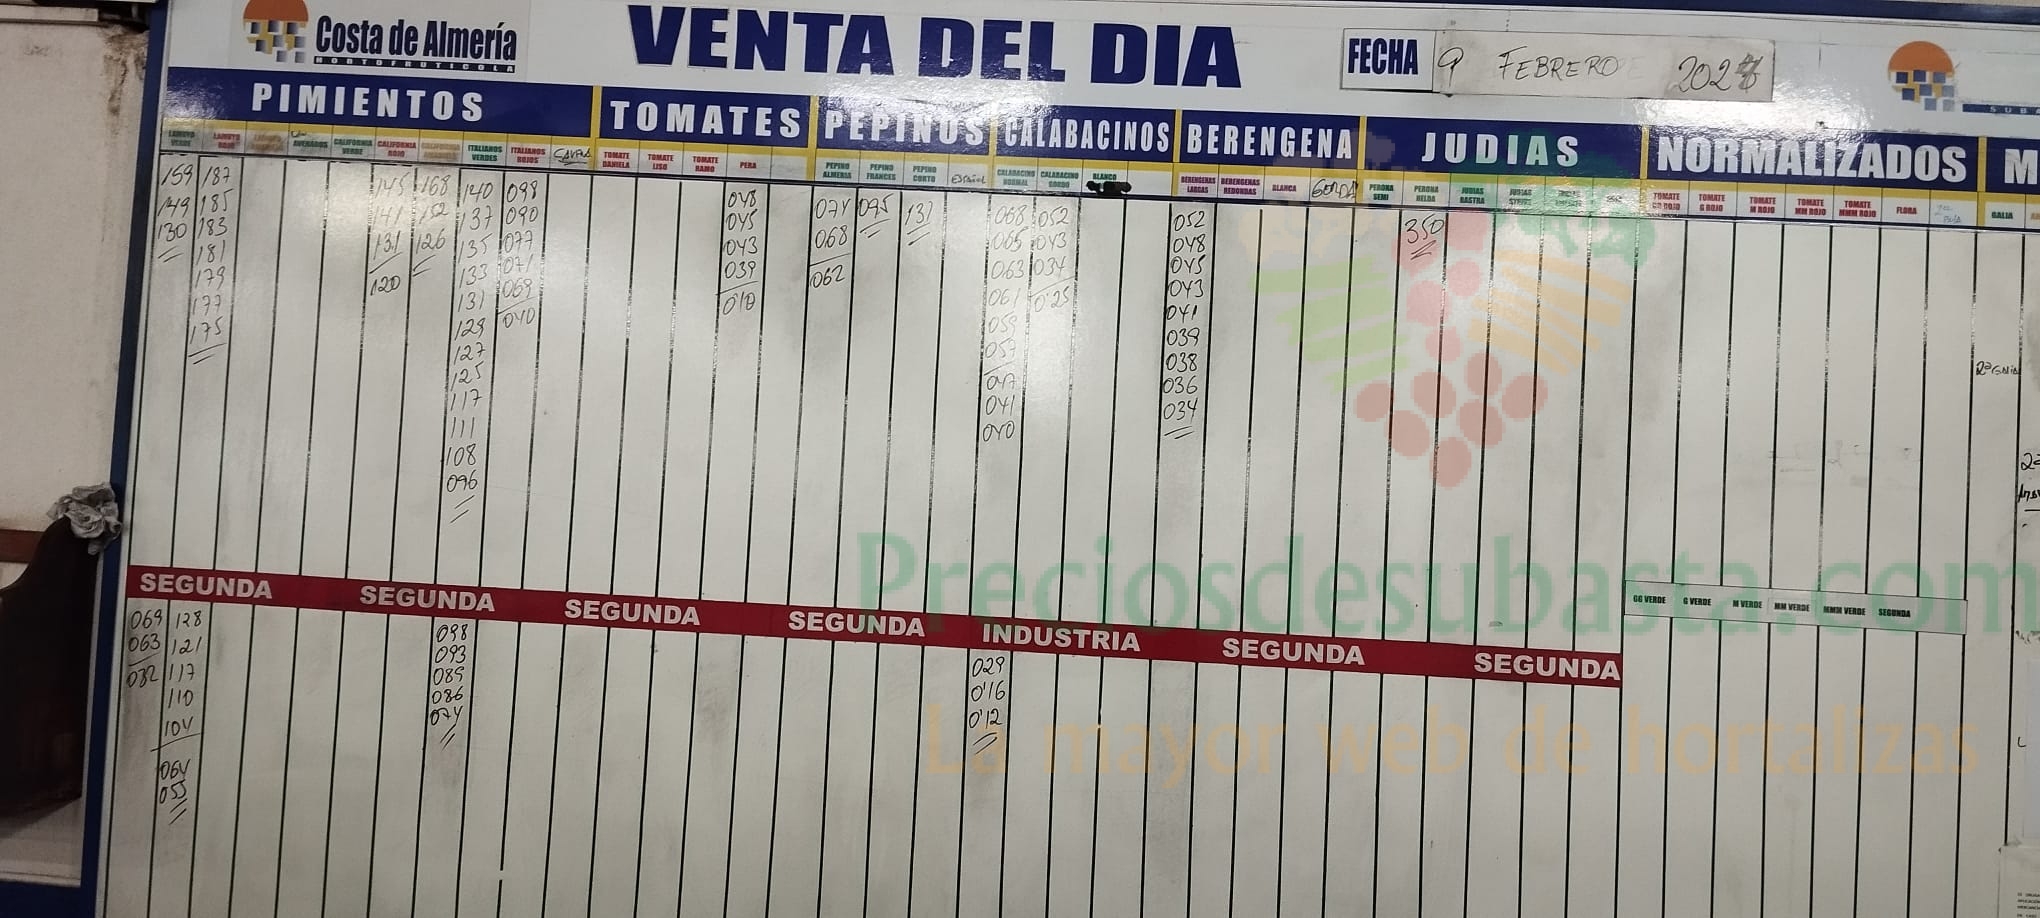 Costa de Almería
HORTOFRUTICOLA
VENTA DEL DIA
FECHA 9 FEBRERO
PIMIENTOS TOMATES PEPINOS CALABACINOS BERENGENA JUDIAS NORMALIZADOS M
LAMUYO VERDE
LAMUYO ROJO
CALIFORNIA VERDE
CALIFORNIA ROJO
ITALIANOS VERDES
ITALIANOS ROJOS
TOMATE DANIELA
TOMATE LISO
TOMATE RAMO
PERA
PEPINO ALMERIA
PEPINO FRANCES
PEPINO CORTO
ESPAÑOL
CALABACINO NORMAL
CALABACINO GORDO
BLANCO
BERENGENAS LARGAS
BERENGENAS REDONDAS
BLANCA
GORDA
PERONA SEMI
PERONA HELDA
JUDIAS RASTRA
TOMATE GG ROJO
TOMATE G ROJO
TOMATE M ROJO
TOMATE MM ROJO
TOMATE MMM ROJO
FLORA
GALIA
159
149
130
187
185
183
181
179
177
175
145
141
131
120
168
152
126
140
137
135
133
131
129
127
125
117
111
108
096
098
090
077
071
069
040
048
045
043
039
0'10
074
068
062
095
137
068
065
063
061
059
057
047
041
040
052
043
034
0'25
052
048
045
043
041
039
038
036
034
350
2ª GALIA
SEGUNDA SEGUNDA SEGUNDA SEGUNDA INDUSTRIA SEGUNDA SEGUNDA
GG VERDE G VERDE M VERDE MM VERDE MMM VERDE SEGUNDA
069
063
032
128
121
117
110
104
064
055
098
093
089
086
074
029
0'16
0'12
Preciosdesubasta.com
La mayor web de hortalizas